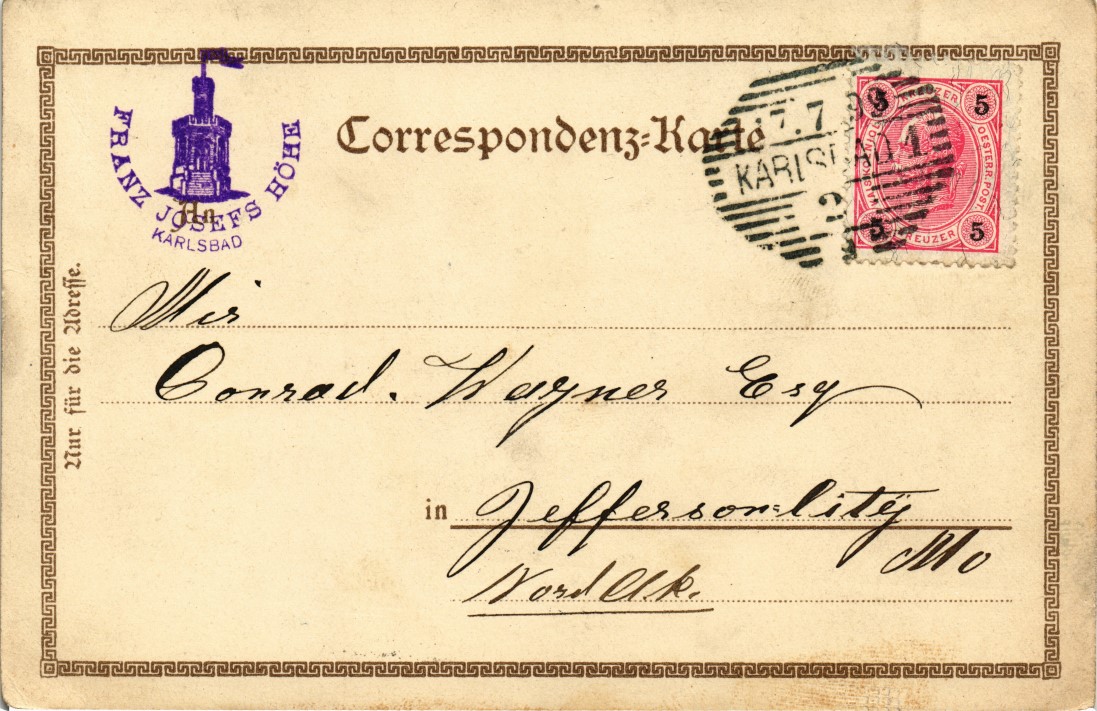 FRANZ JOSEFS HÖHE
KARLSBAD
Correspondenz-Karte
17.7.98
KARLSBAD 1
2
5 KREUZER 5
OESTERR. POST.
5 KREUZER 5
An
Nur für die Adresse.
Mis
Conrad. Wagner Esq
in Jefferson-City
Mo
Nord Ak.